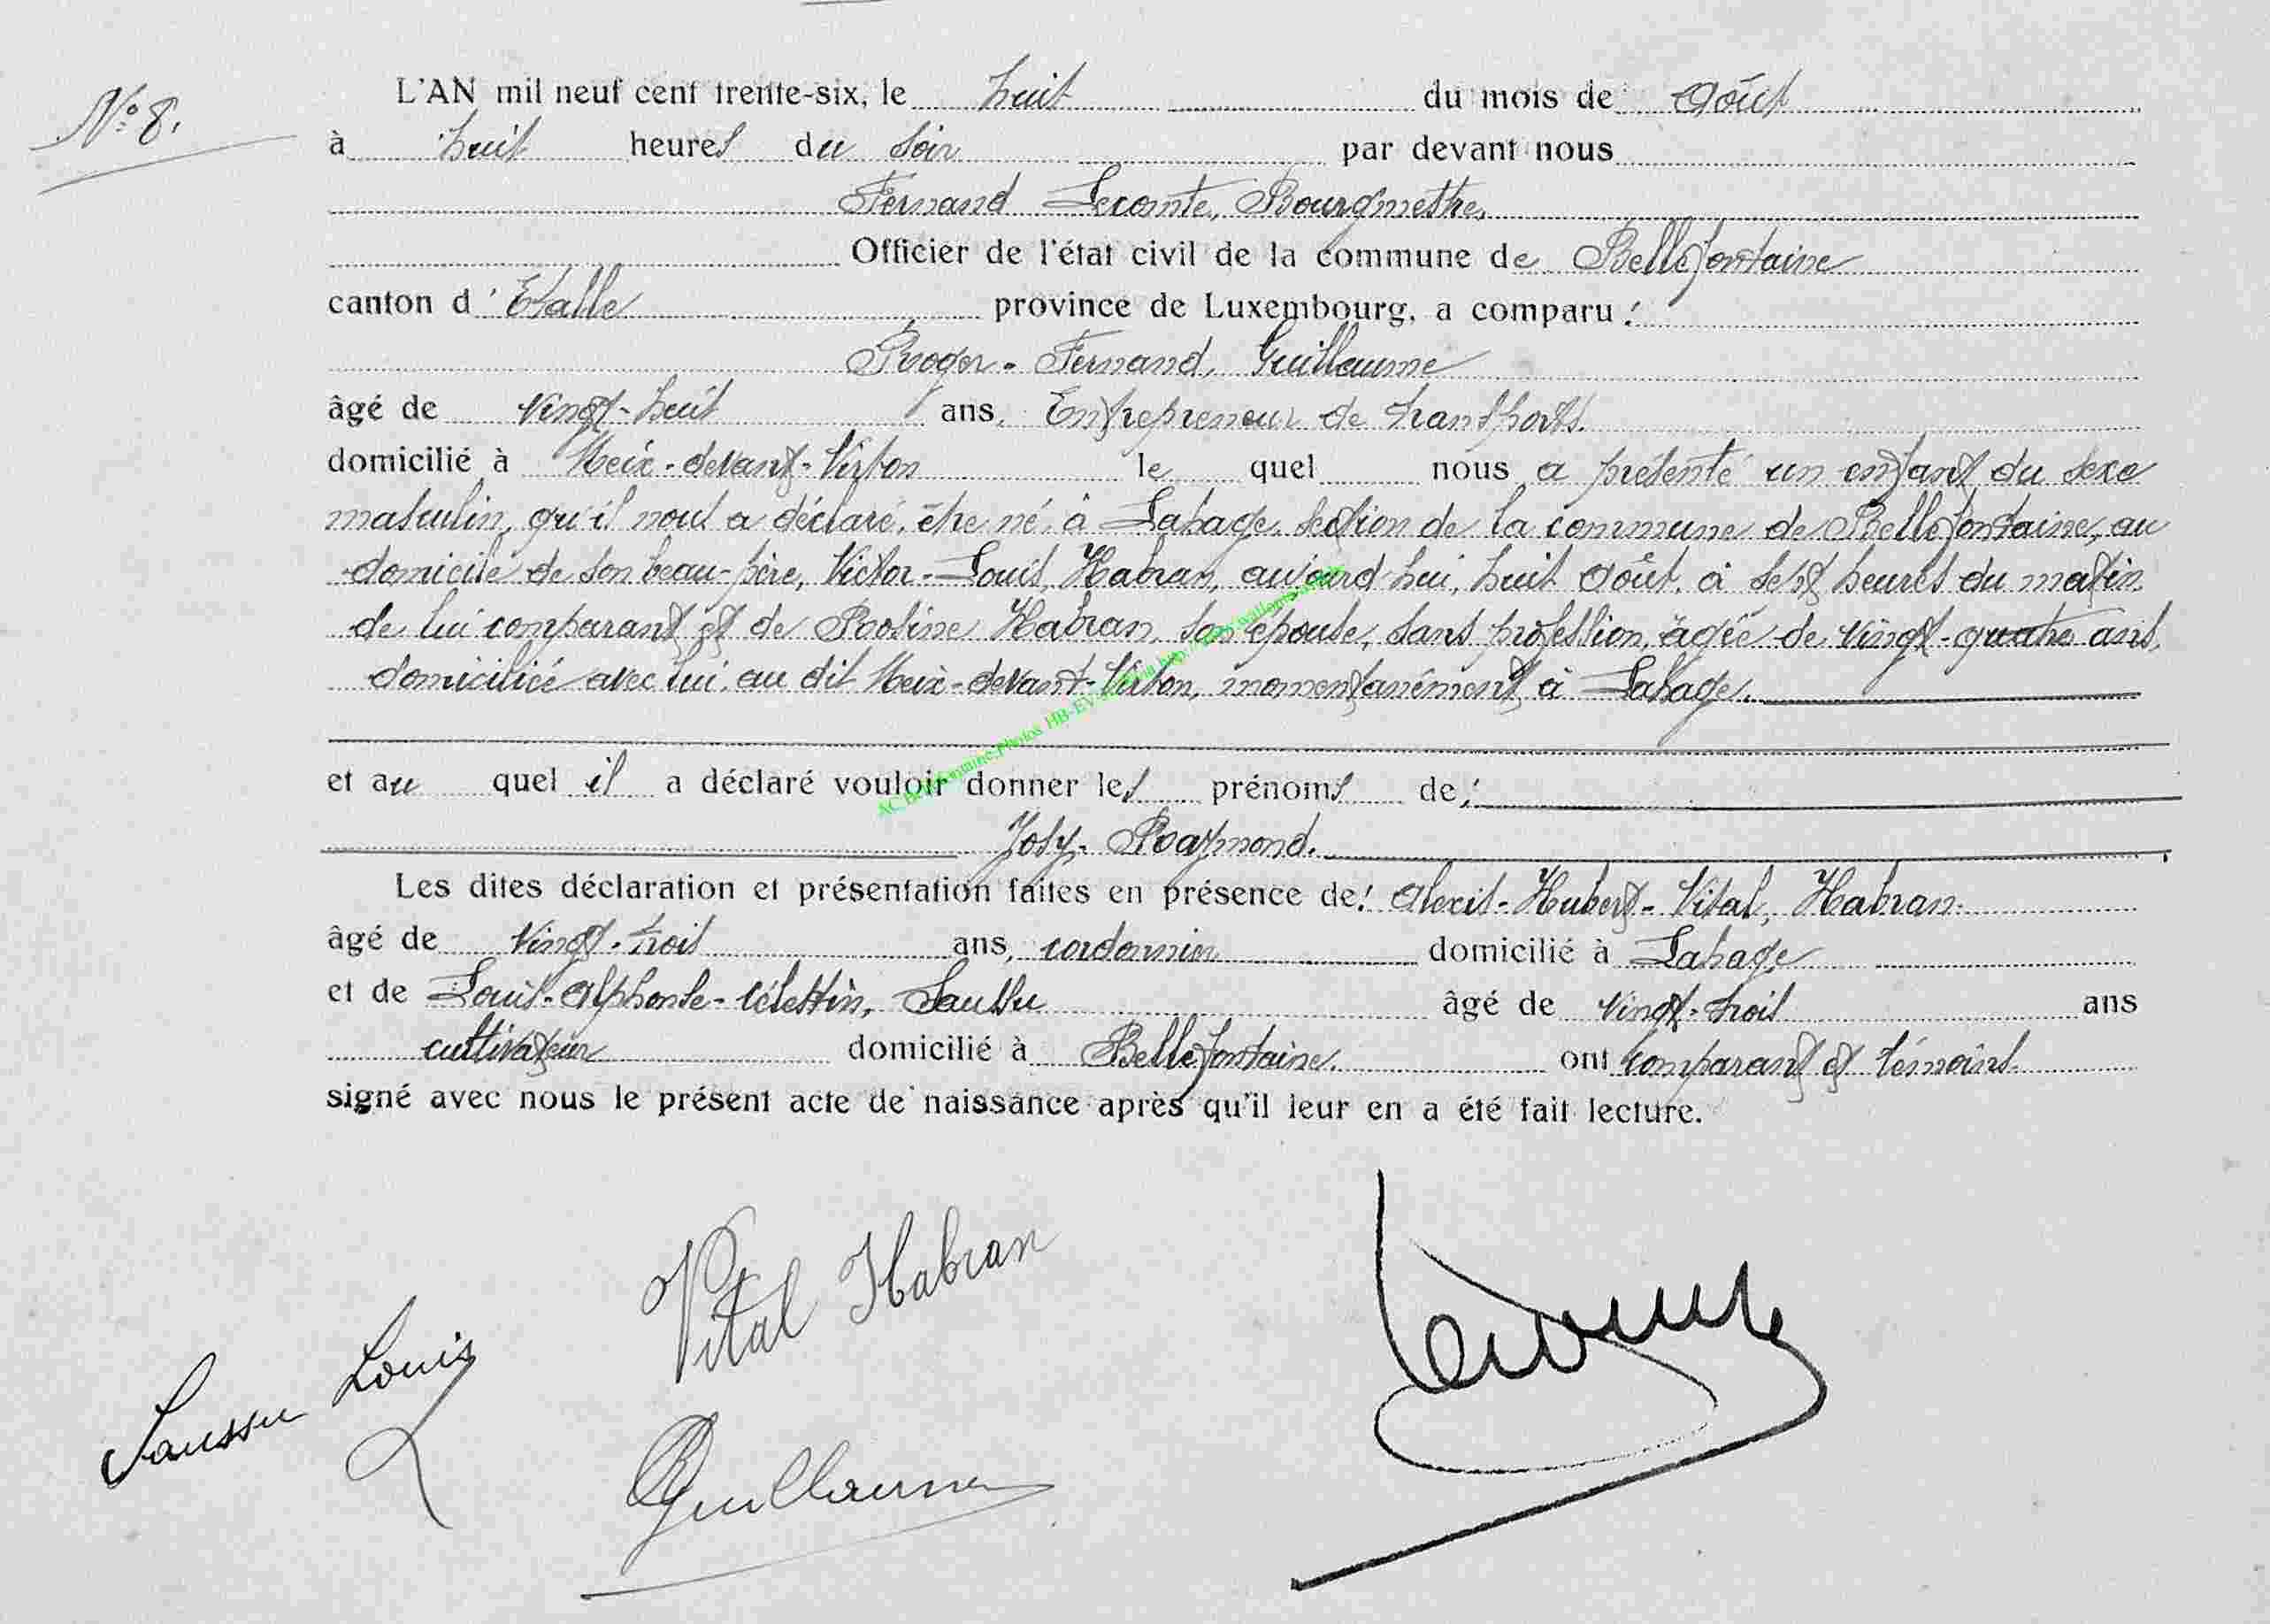 N° 8.
L'AN mil neuf cent trente-six, le huit du mois de Août
à huit heures du soir par devant nous
Fernand Lecomte, Bourgmestre,
Officier de l'état civil de la commune de Bellefontaine
canton d'Etalle province de Luxembourg, a comparu :
Roger-Fernand, Guillaume
âgé de vingt-huit ans, Entrepreneur de transports.
domicilié à Meix-devant-Virton lequel nous a présenté un enfant du sexe
masculin, qu'il nous a déclaré, être né, à Lahage, section de la commune de Bellefontaine, au
domicile de son beau-père, Victor-Louis, Habran, aujourd'hui, huit août, à sept heures du matin.
de lui comparant et de Rosine Habran, son épouse, sans profession, âgée de vingt-quatre ans,
domiciliée avec lui, au dit Meix-devant-Virton, momentanément à Lahage.
et au quel il a déclaré vouloir donner les prénoms de :
Josy-Raymond.
Les dites déclaration et présentation faites en présence de : Alexis-Hubert-Vital, Habran.
âgé de vingt-trois ans, cordonnier domicilié à Lahage
et de Louis-Alphonse-Célestin, Saussu âgé de vingt-trois ans
cultivateur domicilié à Bellefontaine. ont comparant et témoins
signé avec nous le présent acte de naissance après qu'il leur en a été fait lecture.
Vital Habran
Saussu Louis
RGuillaume
Lecomte